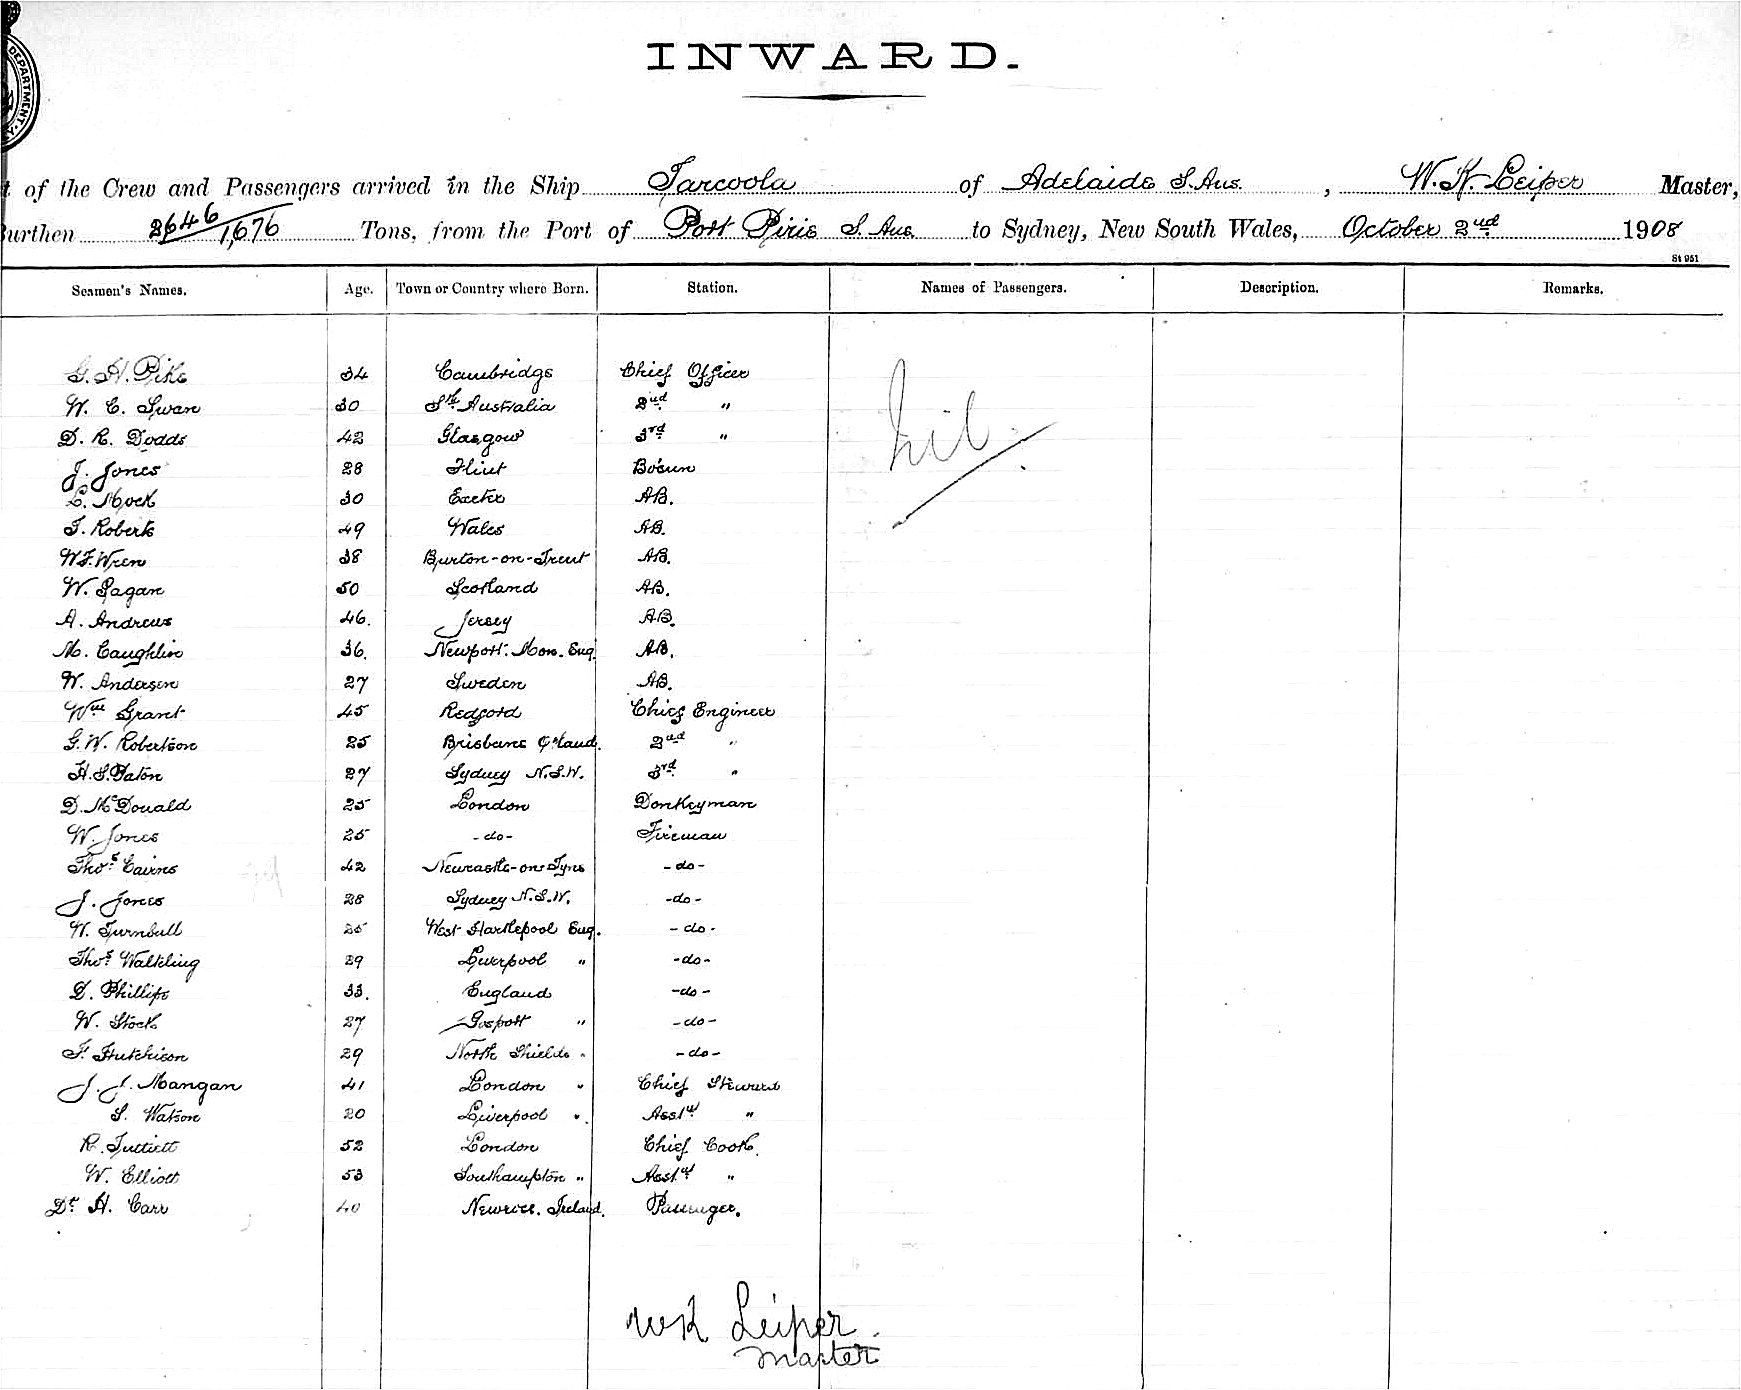 DEPARTMENT
INWARD.
of the Crew and Passengers arrived in the Ship Tarcoola of Adelaide S. Aus. , W. K. Leiper Master,
Burthen 2646/1,676 Tons, from the Port of Port Pirie S. Aus. to Sydney, New South Wales, October 2nd 1908
St 951
Seamen's Names. Age. Town or Country where Born. Station. Names of Passengers. Description. Remarks.
G. H. Pike 34 Cambridge Chief Officer
nil.
W. C. Swan 30 Sth Australia 2nd "
D. R. Dodds 42 Glasgow 3rd "
J. Jones 28 Flint Bosun
L. Mock 30 Exeter AB.
T. Roberts 49 Wales AB.
W. F. Wren 38 Burton-on-Trent AB.
W. Pagan 50 Scotland AB.
A. Andrews 46. Jersey AB.
M. Caughlin 36. Newport. Mon. Eng. AB.
W. Andersen 27 Sweden AB.
Wm Grant 45 Redford Chief Engineer
G. W. Robertson 25 Brisbane Q'land. 2nd "
H. S. Paton 27 Sydney N.S.W. 3rd "
D. McDonald 25 London Donkeyman
W. Jones 25 -do- Fireman
Thos. Cairns 42 Newcastle-on-Tyne -do-
J. Jones 28 Sydney N.S.W. -do-
W. Turnbull 25 West Hartlepool Eng. -do-
Thos. Walkling 29 Liverpool " -do-
D. Phillips 33. England -do-
W. Stock 27 Gosport " -do-
F. Hutchison 29 North Shields " -do-
J. J. Mangan 41 London " Chief Steward
S. Watson 20 Liverpool " Asst "
R. Tuttiett 52 London Chief Cook.
W. Elliott 53 Southampton " Asst "
Dr. H. Carr 40 Ireland. Passenger.
WK Leiper.
Master